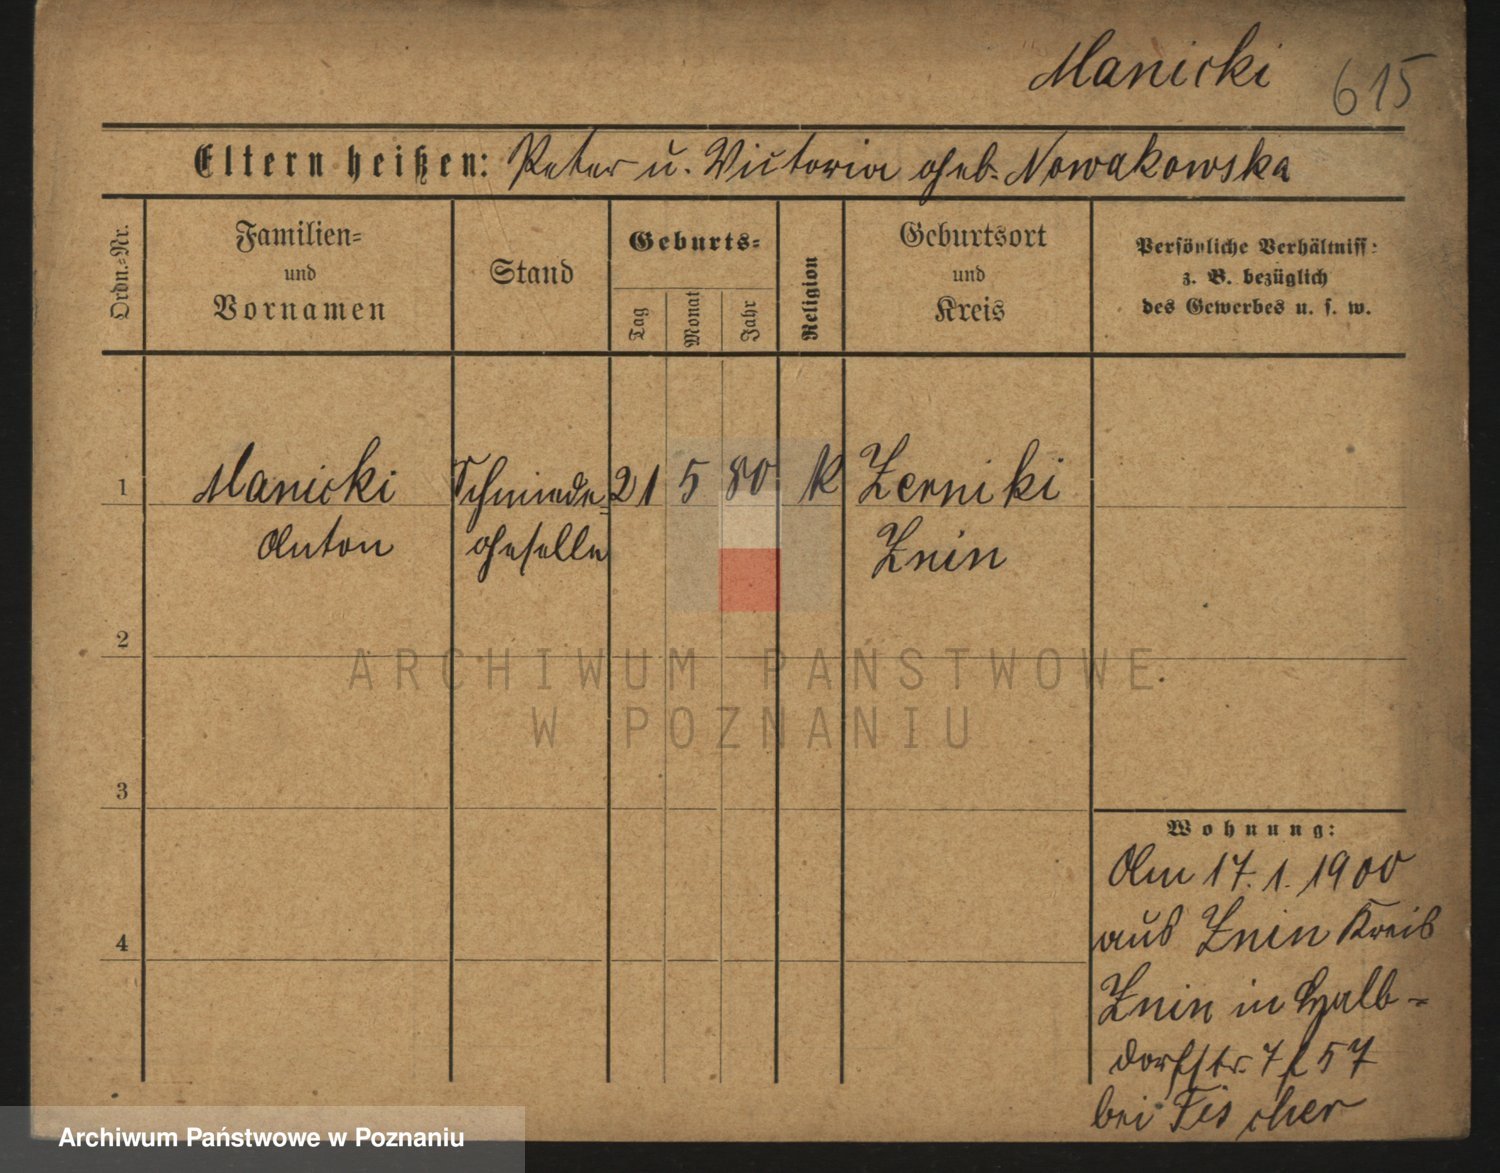 Manicki 615
Eltern heißen: Peter u. Victoria geb. Nowakowska
Ordn.-Nr.
Familien-
und
Vornamen
Stand
Geburts-
Tag
Monat
Jahr
Religion
Geburtsort
und
Kreis
Persönliche Verhältniss:
z. B. bezüglich
des Gewerbes u. s. w.
1 Manicki Schmiede- 21 5 80 k Zerniki
Anton geselle Znin
2
ARCHIWUM PAŃSTWOWE
W POZNANIU
3
Wohnung:
Am 17.1.1900
4
aus Znin Kreis
Znin in Halb-
dorfstr. 7 f 57
bei Fischer
Archiwum Państwowe w Poznaniu